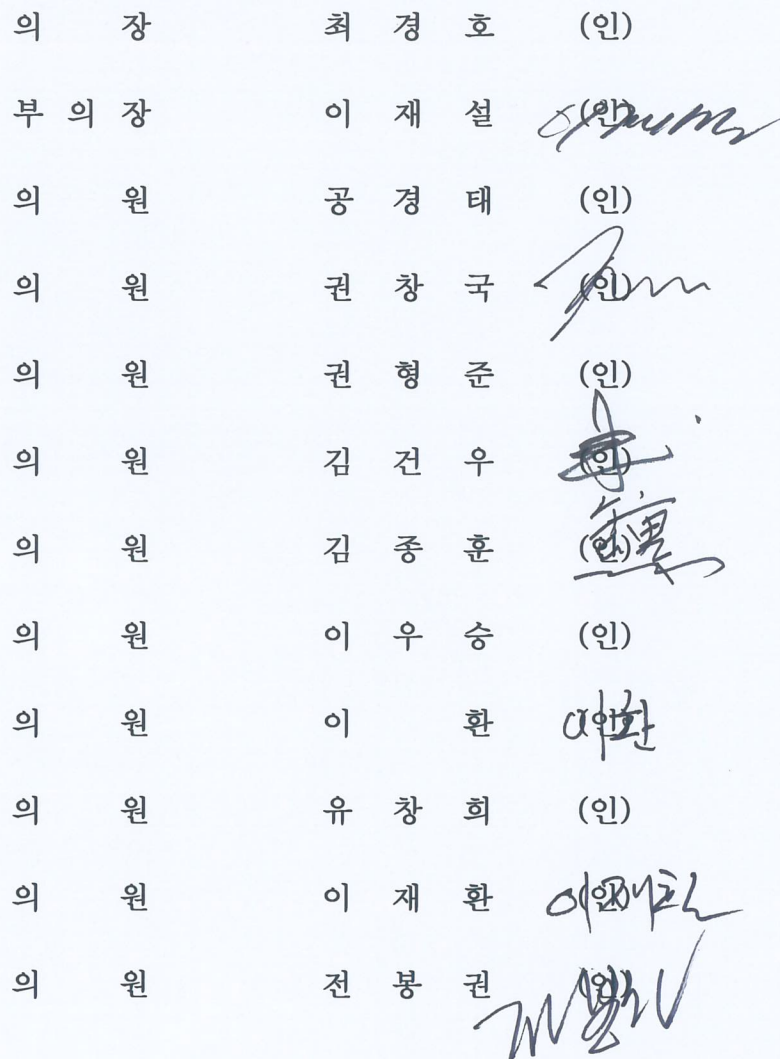 의 장 최 경 호 (인)
부 의 장 이 재 설 (인)
의 원 공 경 태 (인)
의 원 권 창 국 (인)
의 원 권 형 준 (인)
의 원 김 건 우 (인)
의 원 김 종 훈 (인)
의 원 이 우 승 (인)
의 원 이 환 (인) 이환
의 원 유 창 희 (인)
의 원 이 재 환 (인) 이재환
의 원 전 봉 권 (인)